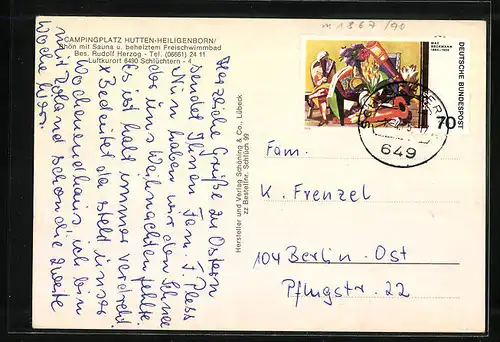 m 1367/90
CAMPINGPLATZ HUTTEN-HEILIGENBORN/
Rhön mit Sauna u. beheiztem Freischwimmbad
Bes. Rudolf Herzog - Tel. (06661) 24 11
-Luftkurort 6490 Schlüchtern - 4
Herzliche Grüße zu Ostern
sendet Ihnen Fam. F. Pless
Nun haben wir den Schnee
der uns Weihnachten fehlte.
Es ist halt immer verdreht.
x Bedeutet da steht unser
Wochenendhaus, ich bin
mit Roland schon die zweite
Woche hier.
Hersteller und Verlag Schöning & Co., Lübeck
zz Bestellnr. Schlüch 99
MAX
BECKMANN
DEUTSCHE BUNDESPOST
70
649
Fam.
K. Frenzel
104 Berlin-Ost
Pflugstr. 22